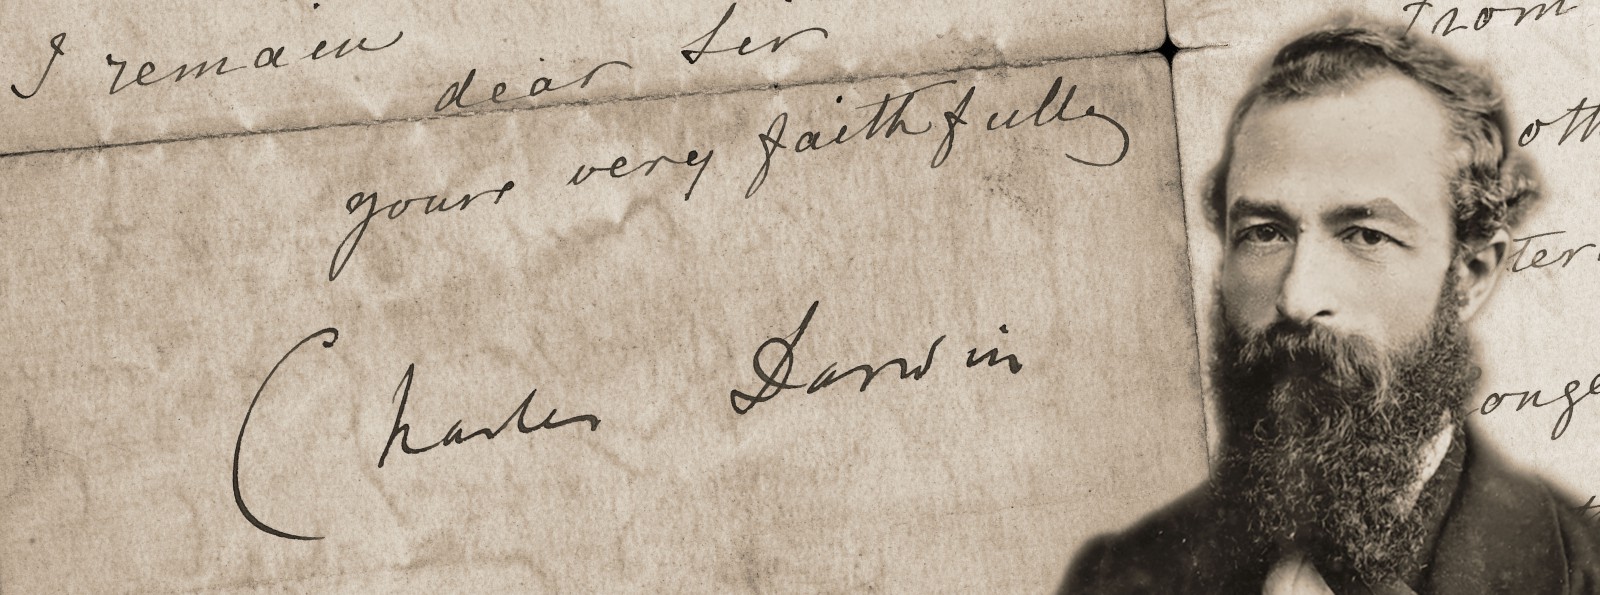 I remain
dear Sir
yours very faithfully
Charles Darwin
from
oth
ter
onge